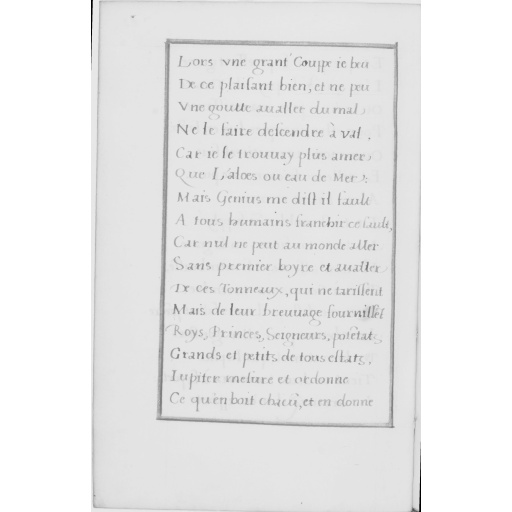 Lors vne grant Couppe ie beu
De ce plaisant bien, et ne peu
Vne goutte aualler du mal
Ne le faire descendre à val.
Car ie le trouuay plus amer
Que L'aloes ou eau de Mer:
Mais Genius me dist il fault
A tous humains franchir ce sault,
Car nul ne peut au monde aller
Sans premier boyre et aualler
De ces Tonneaux, qui ne tarissent
Mais de leur breuuage fournissẽt
Roys, Princes, Seigneurs, potẽtatz
Grands et petits de tous estatz.
Iupiter mesure et ordonne
Ce qu'en boit chacũ, et en donne